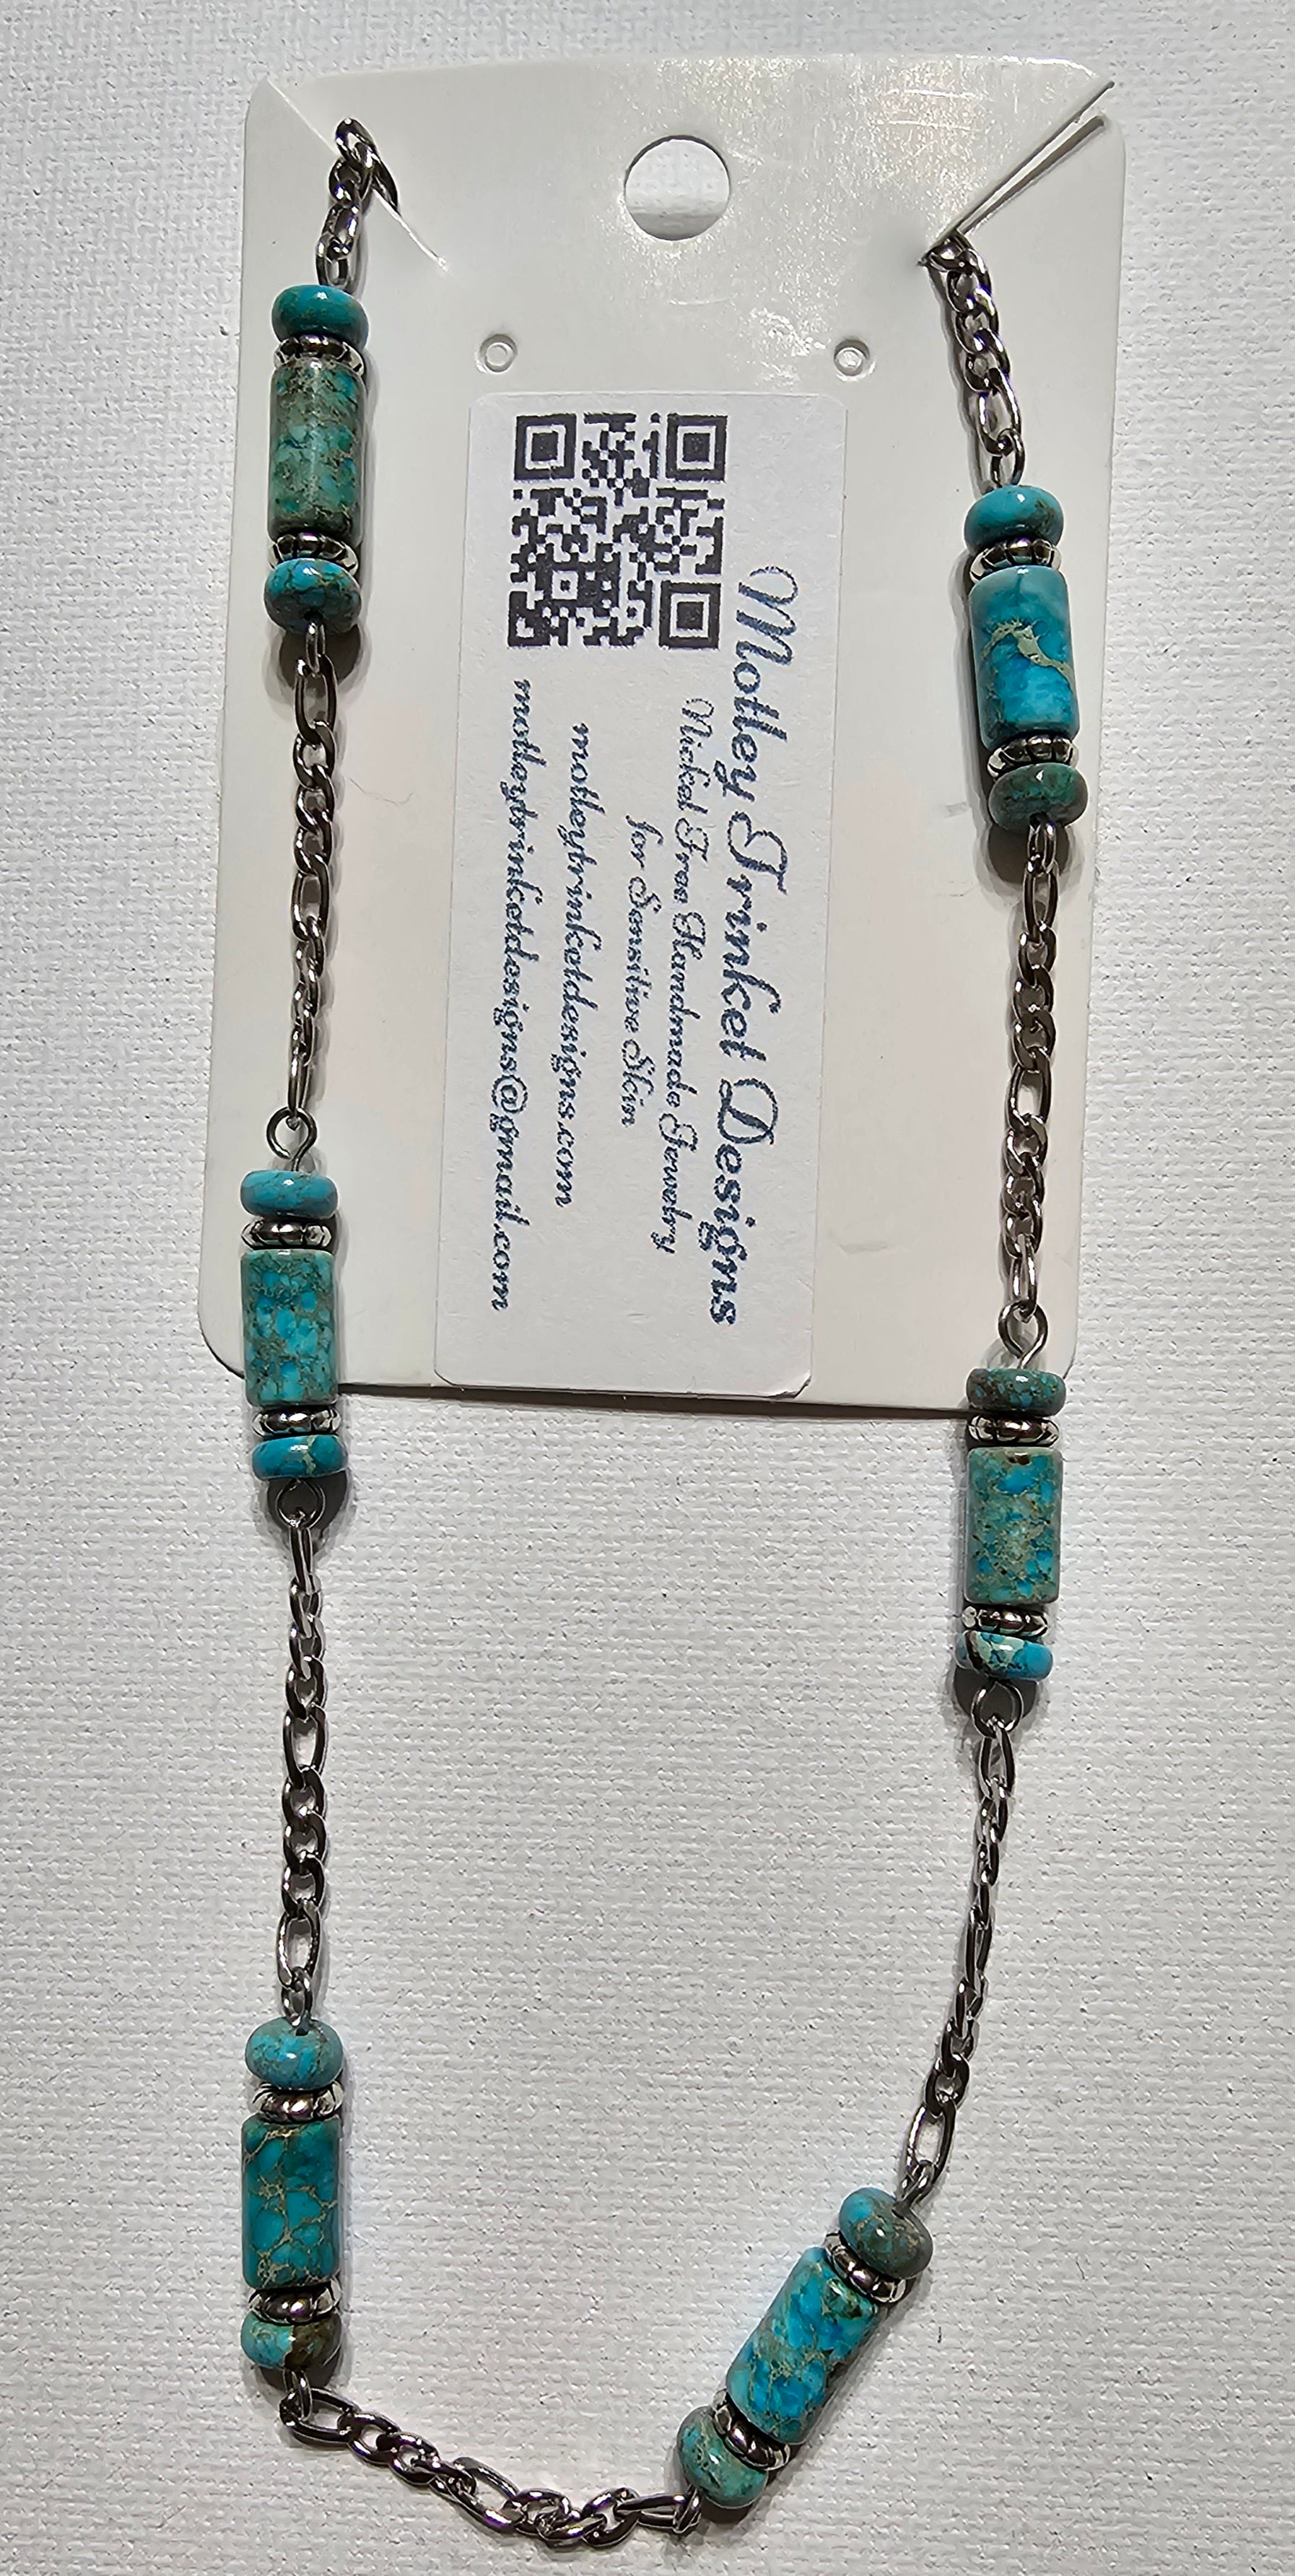 Motley Trinket Designs
Nickel Free Handmade Jewelry
for Sensitive Skin
motleytrinketdesigns.com
motleytrinketdesigns@gmail.com